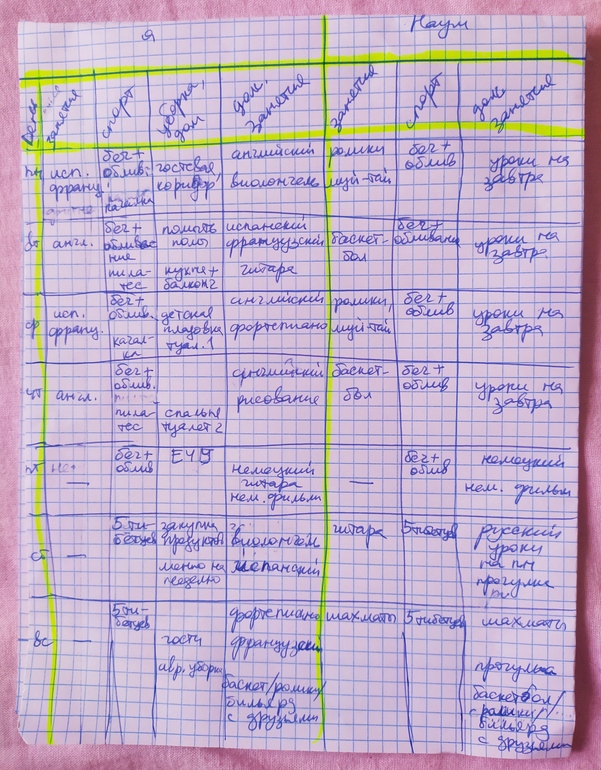 Я Наум
День занятия спорт уборка, дом дом. занятия занятия спорт дом. занятия
пн исп. франц. бег+ облив. качалка гостевая коридор английский виолончель ролики муй-тай бег+ облив уроки на завтра
вт англ. бег+ обливание пилатес помыть полы кухня+ балкон 2 испанский французский гитара баскетбол бег+ обливание уроки на завтра
ср исп. франц. бег+ облив. качалка детская кладовка туал. 1 английский фортепиано ролики, муй-тай бег+ облив уроки на завтра
чт англ. бег+ облив. пилатес спальня туалет 2 английский рисование баскетбол бег+ облив уроки на завтра
пт — бег+ облив немецкий гитара нем. фильм — бег+ облив немецкий нем. фильм
ст — 5 тибетцев закупка продуктов меню на неделю виолончель испанский гитара 5 тибетцев русский уроки на пн прогулка
вс — 5 тибетцев гости авр. уборка фортепиано французский баскет/ролики/ бильярд с друзьями шахматы 5 тибетцев шахматы прогулка баскетбол/ ролики/ бильярд с друзьями